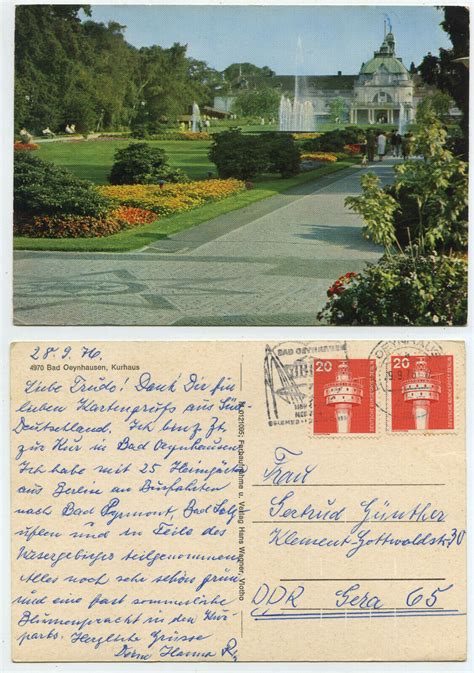 28.9.76
4970 Bad Oeynhausen, Kurhaus
Liebe Trude! Dank Dir für
lieben Kartengruß aus Süd
Deutschland. Ich bin z. Zt.
zur Kur in Bad Oeynhausen
Ich habe mit 25
aus Berlin an Busfahrten
nach Bad Pyrmont, Bad Salz
uflen und in Teile des
Wesergebirges teilgenommen
Alles noch sehr schön grün
und eine fast sommerliche
Blumenpracht in den Kur
parks. Herzliche Grüsse
Hanna
M 0121035; Farbaufnahme u. Verlag Hans Wagner, Vlotho
BAD OEYNHAUSEN
OEYNHAUS
20
DEUTSCHE BUNDESPOST BERLIN
20
DEUTSCHE BUNDESPOST BERLIN
Frau
Gertrud Günther
Klement-Gottwaldstr. 30
DDR Gera 65